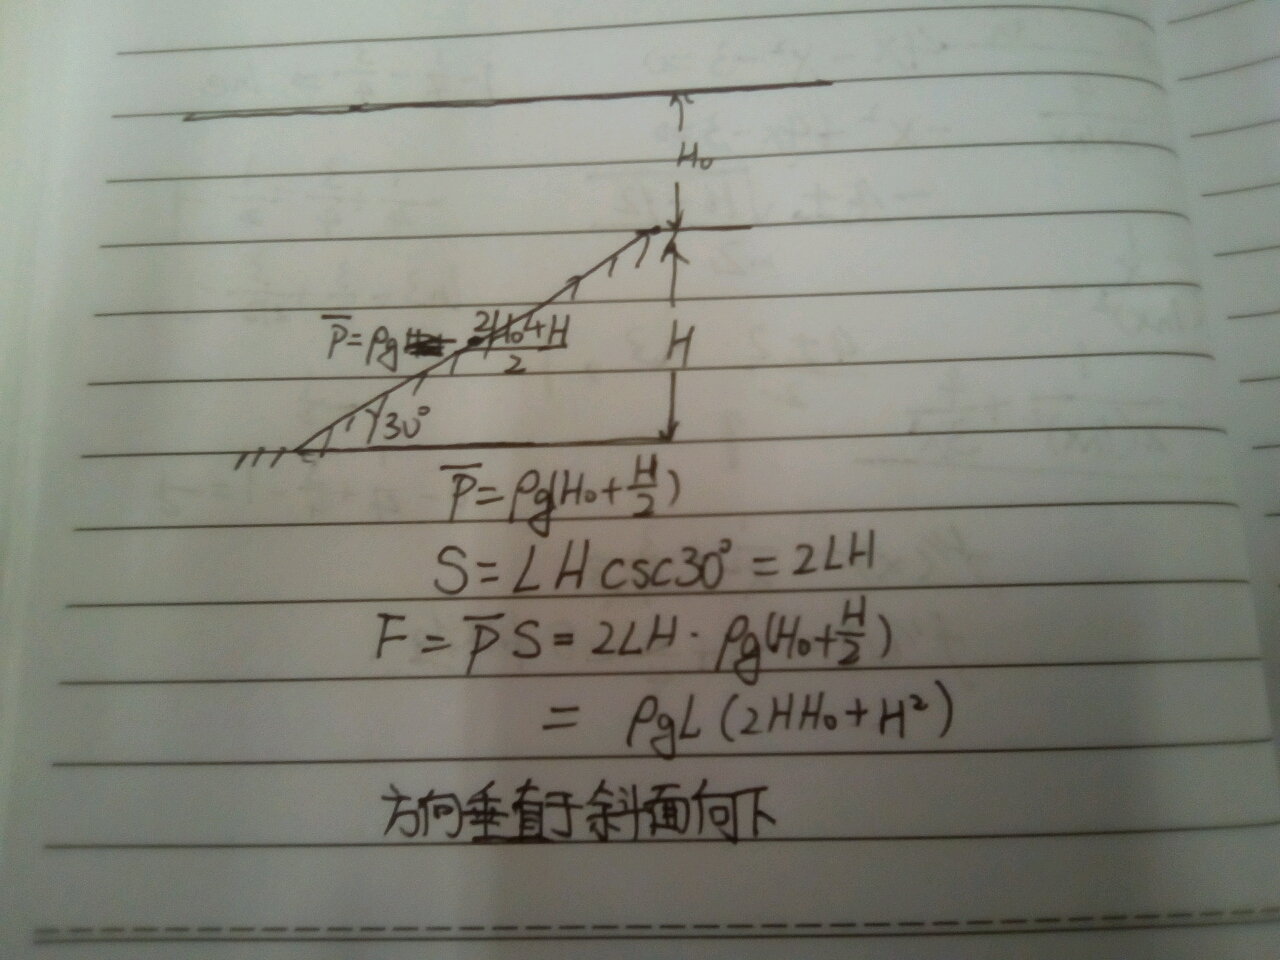 H₀
P̅=ρg (2H₀+H)/2
H
30°
P̅=ρg(H₀+H/2)
S=LHcsc30°=2LH
F=P̅S=2LH·ρg(H₀+H/2)
=ρgL(2HH₀+H²)
方向垂直于斜面向下